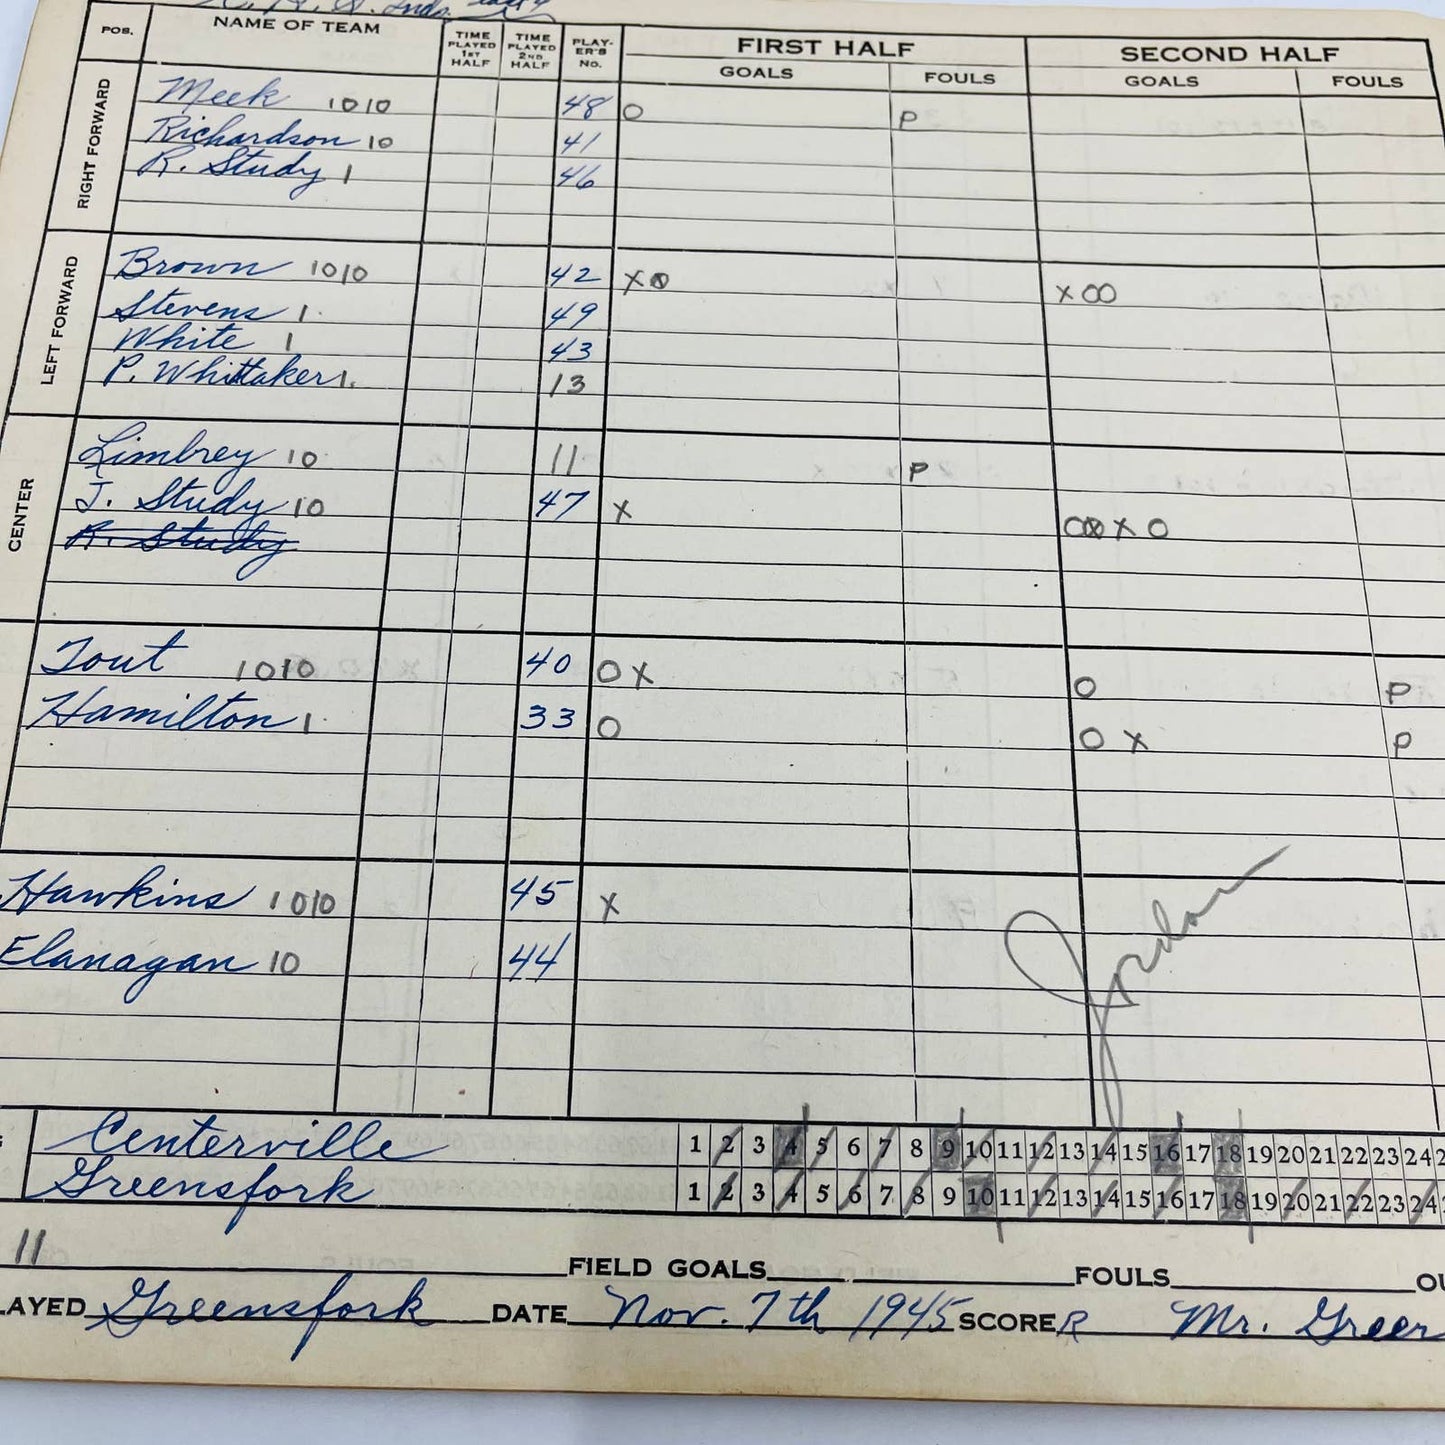 POS. NAME OF TEAM TIME PLAYED 1ST HALF TIME PLAYED 2ND HALF PLAYER'S NO. FIRST HALF SECOND HALF
GOALS FOULS GOALS FOULS
RIGHT FORWARD
Meek 1010 48 O P
Richardson 10 41
R. Study 1 46
LEFT FORWARD
Brown 1010 42 XO XOO
Stevens 1 49
White 1 43
P. Whittaker 1. 13
CENTER
Limbrey 10 11 P
J. Study 10 47 X OOXO
R. Study
Tout 1010 40 OX O P
Hamilton 1 33 O O X P
Hawkins 1010 45 X
Flanagan 10 44
Jordan
Centerville 1 2 3 4 5 6 7 8 9 10 11 12 13 14 15 16 17 18 19 20 21 22 23 24
Greensfork 1 2 3 4 5 6 7 8 9 10 11 12 13 14 15 16 17 18 19 20 21 22 23 24
11 FIELD GOALS FOULS
LAYED Greensfork DATE Nov. 7th 1945 SCORER Mr. Greer